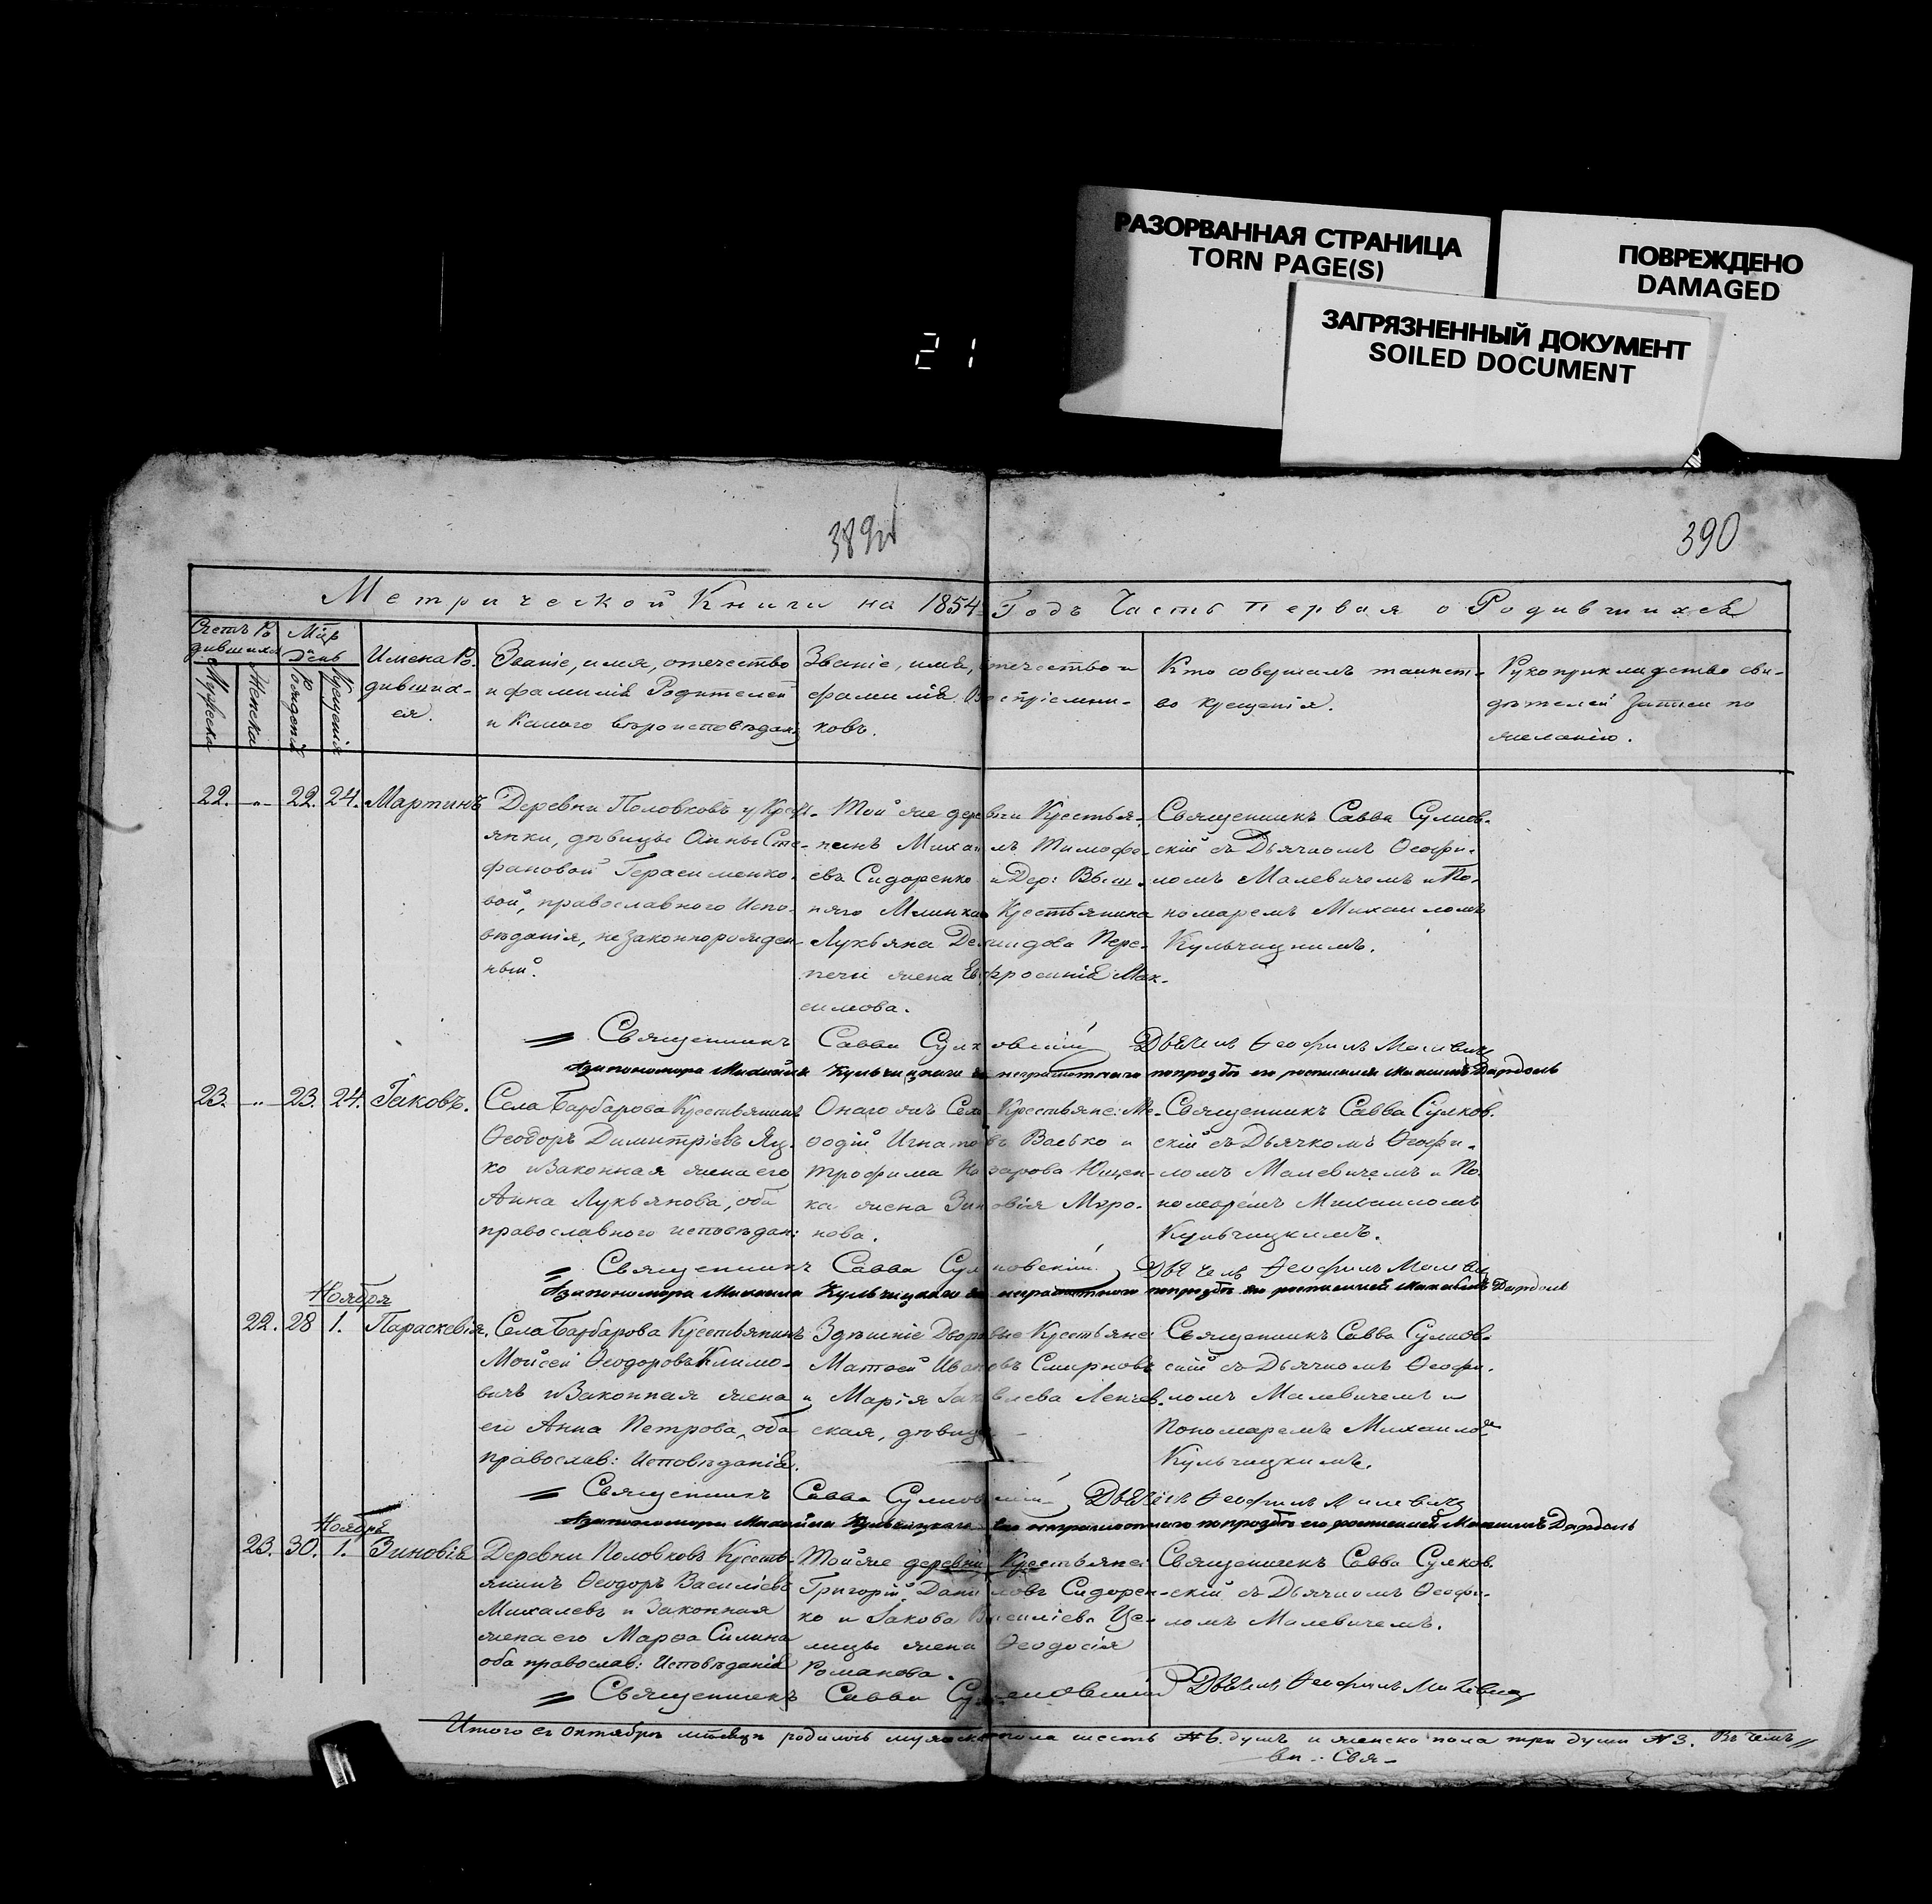 РАЗОРВАННАЯ СТРАНИЦА
TORN PAGE(S)
ПОВРЕЖДЕНО
DAMAGED
ЗАГРЯЗНЕННЫЙ ДОКУМЕНТ
SOILED DOCUMENT
21
389
390
Метрической Книги на 1854 Годъ Часть первая о Родившихся
Счетъ Ро
дившихся
Мужеска
Женска
День
рожденія
Крещенія
Имена Ро-
дивших-
ся.
Званіе, имя, отечество
и фамилія Родителей
и Какого вѣроисповѣдан:
Званіе, имя, отечество и
фамилія Воспріемни-
ковъ.
Кто совершалъ таинст-
во крещенія.
Рукоприкладство сви-
дѣтелей записи по
желанію.
22. -„- 22. 24. Мартинъ
Деревни Половковъ у Крест-
янки, дѣвицы Анны Сте-
фановой Герасименко-
вой, православного Испо-
вѣданія, незаконнорожден-
ный.
Той же деревни Крестья-
нинъ Михаилъ Тимофе-
евъ Сидоренко и Дер:
няго Млинка Крестьянина
Лукьяна Демидова Пере-
печи жена Евфросинія Мак-
симова.
Священникъ Савва Сулков-
скій съ Дьячкомъ Ѳеофи-
ломъ Малевичемъ и По-
номаремъ Михаиломъ
Кульчицкимъ.
Священникъ Савва Сулковскій Дьячекъ Ѳеофилъ Малевичъ
За пономора Михаила Кульчицкого неграмотного по прозбѣ его росписался
23. „ 23. 24. Іаковъ.
Села Барбарова Крестьянинъ
Ѳеодоръ Димитріевъ Яц-
ко и Законная жена его
Анна Лукьянова, оба
православного исповѣдан:
Онаго жъ Села Крестьяне: Ме-
ѳодій Игнатовъ Васько и
Трофима Назарова Ющен-
ка жена Зиновія Миро-
нова.
Священникъ Савва Сулков-
скій съ Дьячкомъ Ѳеофи-
ломъ Малевичемъ и По-
номаремъ Михаиломъ
Кульчицкимъ.
Священникъ Савва Сулковскій Дьячекъ Ѳеофилъ Малевичъ
За пономора Михаила Кульчицкого неграмотного по прозбѣ его росписался
Ноября
22. 28 1. Параскевія.
Села Барбарова Крестьянинъ
Мойсей Ѳеодоровъ Климо-
вичъ и Законная жена
его Анна Петрова, оба
православ: Исповѣданія.
Здѣшніе Дворовые Крестьяне:
Матѳей Ивановъ Смирновъ
и Марія Іаковлева
ская, дѣвица
Священникъ Савва Сулков-
скій съ Дьячкомъ Ѳеофи-
ломъ Малевичемъ и
Пономаремъ Михаиломъ
Кульчицкимъ.
Священникъ Савва Сулковскій Дьячекъ Ѳеофилъ Малевичъ
За пономора Михаила Кульчицкого неграмотного по прозбѣ его росписался
Ноября
23. 30. 1. Зиновія
Деревни Половковъ Кресть-
янинъ Ѳеодоръ Василіевъ
Михалевъ и Законная
жена его Марѳа Силина
оба православ: Исповѣданія
Той же деревни Крестьяне:
Григорій Даниловъ Сидорен-
ко и Іакова Василіева Це-
лицы жена Ѳеодосія
Романова.
Священникъ Савва Сулков-
скій съ Дьячкомъ Ѳеофи-
ломъ Малевичемъ.
Священникъ Савва Сулковскій Дьячекъ Ѳеофилъ Малевичъ
Итого въ октябрѣ мѣсяцѣ родилось мужеска пола шесть № 6. душъ и женска пола три души № 3. Въ чемъ